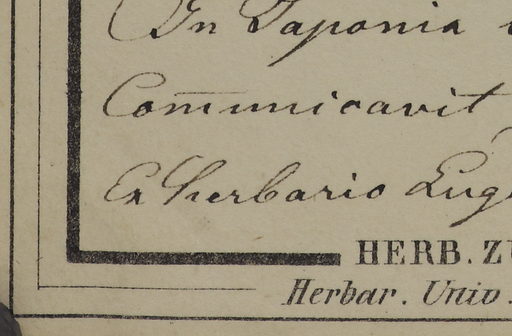 In Japonia
Com̅unicavit
Ex herbario Lug
HERB. ZU
Herbar. Univ.